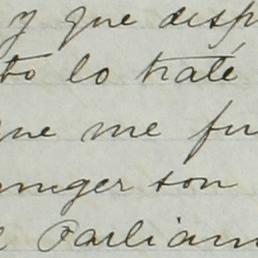 y que desp
to lo traté
que me fu
anger son
Parliam